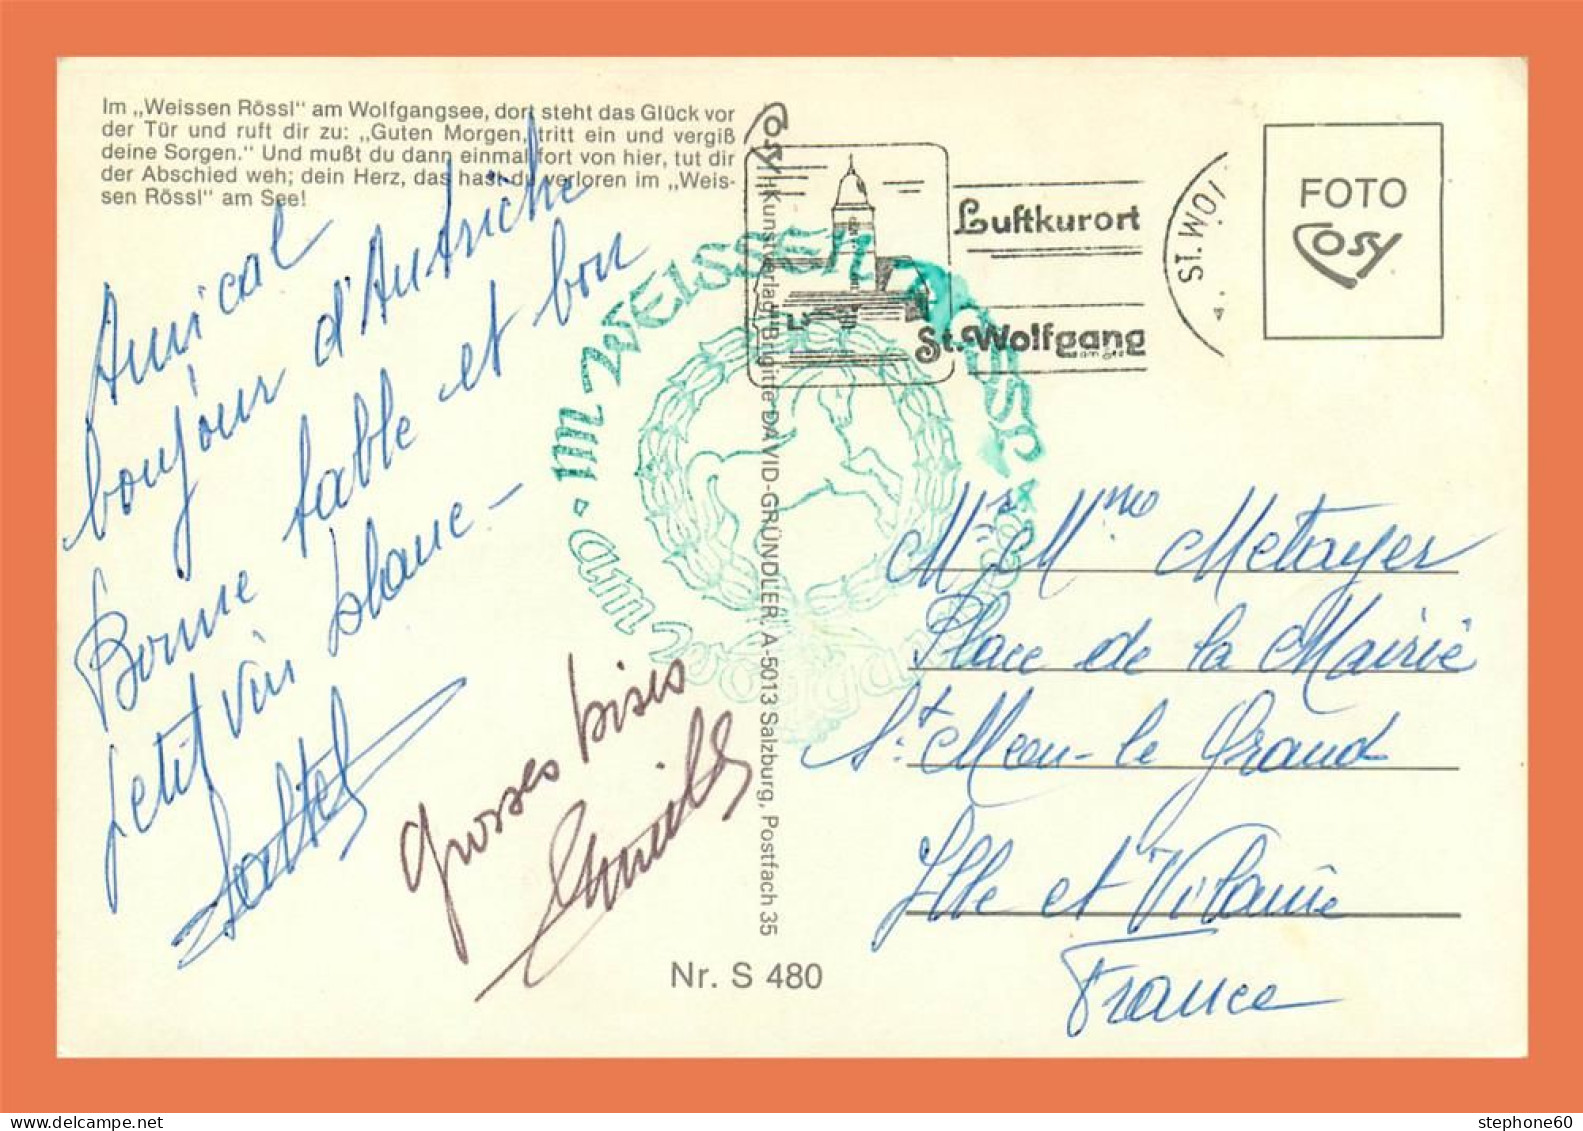 Im „Weissen Rössl" am Wolfgangsee, dort steht das Glück vor
der Tür und ruft dir zu: „Guten Morgen, tritt ein und vergiß
deine Sorgen." Und mußt du dann einmal fort von hier, tut dir
der Abschied weh; dein Herz, das hast du verloren im „Weis-
sen Rössl" am See!
Amical
bonjour d'Autriche
Bonne table et bon
petit vin blanc -
Grosses bises
Cosy
Kunstverlag Brigitte DAVID-GRÜNDLER, A-5013 Salzburg, Postfach 35
Nr. S 480
IM WEISSEN RÖSSL
am Wolfgangsee
Luftkurort
St. Wolfgang
ST. WOL
FOTO
Cosy
Mr Mme Metayer
Place de la Mairie
St Meen-le Grand
Ille et Vilaine
France
stephone60